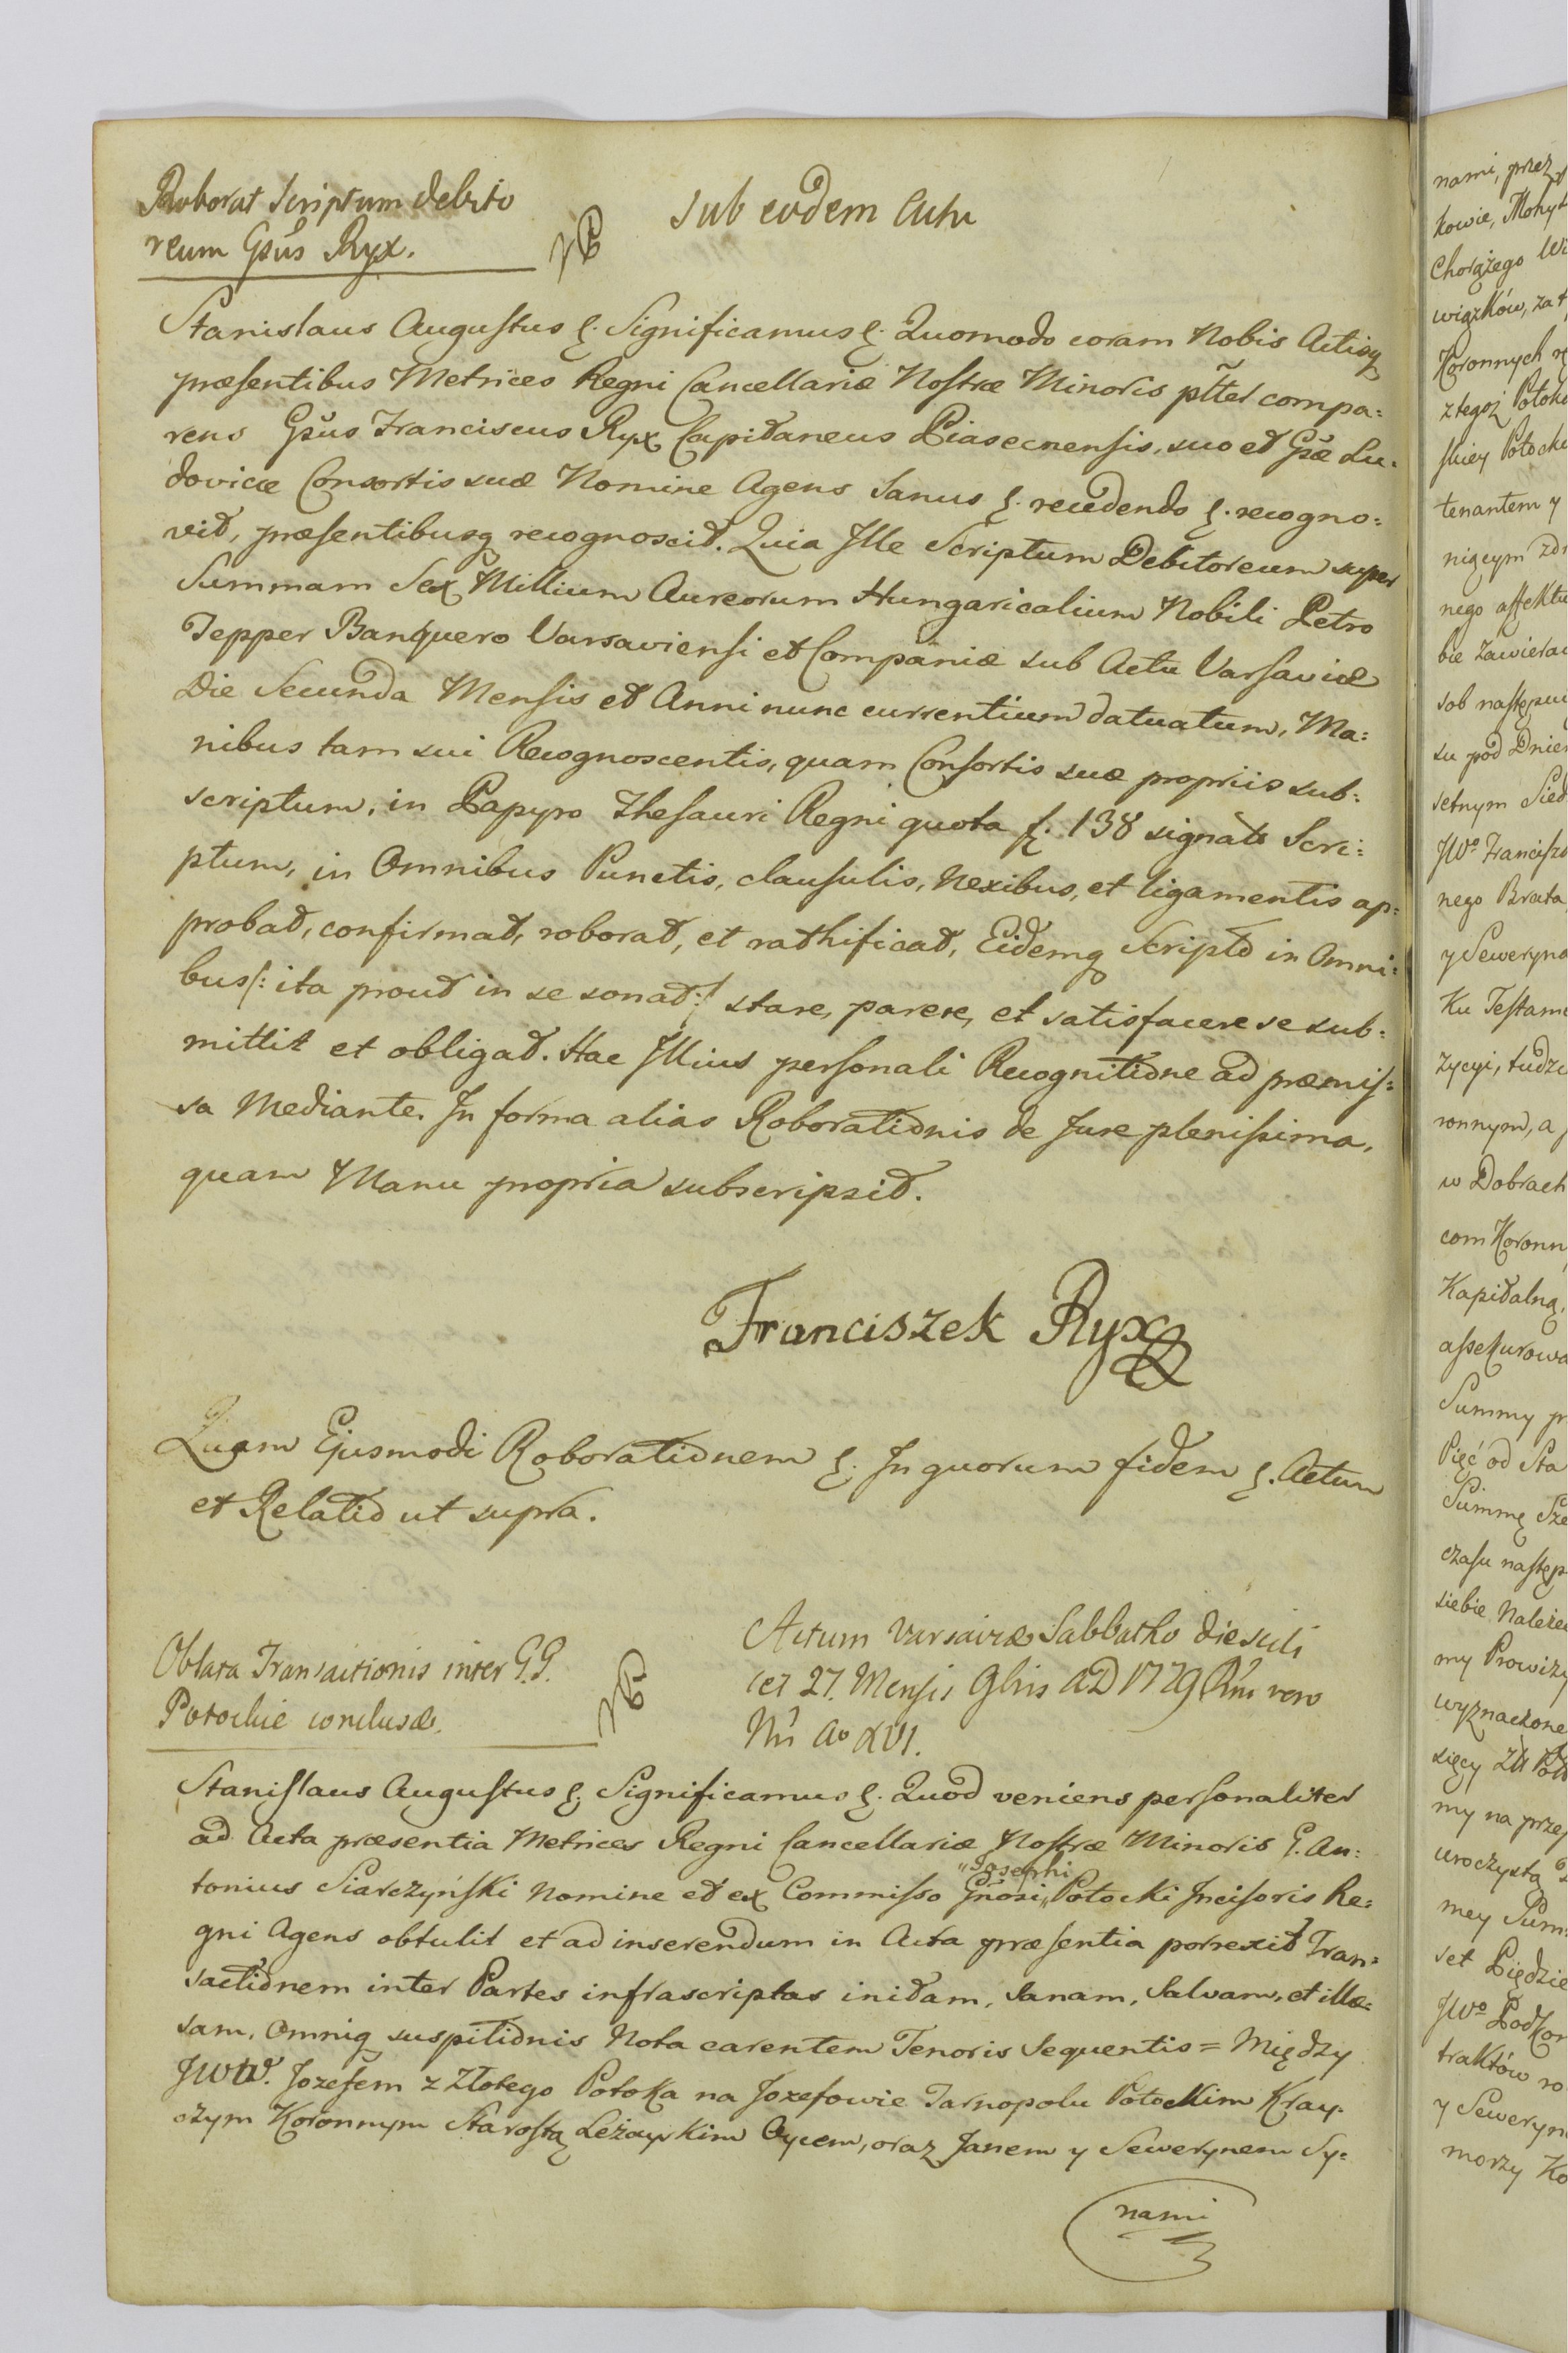 Roborat Scriptum debito
reum Gsus Ryx.
Sub eodem Actu
Stanislaus Augustus &. Significamus &. Quomodo coram Nobis Actisq
præsentibus Metrices Regni Cancellariæ Nostræ Minoris pltter compa:
rens Gsus Franciscus Ryx Capitaneus Piasecnensis, suo et Gsæ Lu:
dovicæ Consortis suæ Nomine Agens Sanus &. recedendo &. recogno:
vit, præsentibusq recognoscit. Quia Ille Scriptum Debitoreum super
Summam Sex Millium Aureorum Hungaricalium Nobili Petro
Tepper Banquero Varsaviensi et Companiæ sub Actu Varsaviæ
Die Secunda Mensis et Anni nunc currentium datuatum, Ma:
nibus tam sui Recognoscentis, quam Consortis suæ propriis sub:
scriptum, in Papyro Thesauri Regni quota f. 138 signato Scri:
ptum, in Omnibus Punctis, clausulis, Nexibus, et ligamentis ap:
probat, confirmat, roborat, et rathificat, Eidemq Scripto in Omni:
bus /: ita prout in se sonat :/ stare, parere, et satisfacere se sub:
mittit et obligat. Hac Illius personali Recognitione ad præmis:
sa Mediante. In forma alias Roborationis de Jure plenissima,
quam Manu propria subscripsit.
Franciszek Ryx
Quam Ejusmodi Roborationem &. In quorum fidem &. Actum
et Relatio ut supra.
Oblata Transactionis inter G.G.
Potockie conclusæ.
Actum Varsaviæ Sabbatho die scili
cet 27. Mensis 9bris AD 1779 Rni vero
Nri Ao XVI.
Stanislaus Augustus &. Significamus &. Quod veniens personaliter
ad Acta præsentia Metrices Regni Cancellariæ Nostræ Minoris G. An:
tonius Siarczyński Nomine et ex Commisso Gnosi "Josephi" Potocki Incisoris Re:
gni Agens obtulit et ad inserendum in Acta præsentia porrexit Tran:
sactionem inter Partes infrascriptas initam, Sanam, Salvam, et illæ:
sam, Omniq suspitionis Nota carentem Tenoris Sequentis = Między
JWW. Jozefem z Złotego Potoka na Jozefowie Tarnopolu Potockim Kray:
czym Koronnym Starostą Leżayskim Oycem, oraz Janem y Sewerynem Sy:
nami
nami, przez
kowie, Mohyl
Chorążego
wiązków, za
Koronnych
z tegoż Potoki
skiey Potocki
tenantem y
niącym zdr
nego affektu
bie zawiera
sob następu
su pod Dniem
setnym Sied
JWo Francisz
nego Brata
y Seweryna
Ku Testame
zycyi, tudzi
ronnym, a
w Dobrach
com Koronn
Kapitalną,
assekurowa
Summy
Pięć od Sta
Summę Sze
czasu następ
siebie Należe
my Prowizy
wyznaczone
sięcy Zł
my na prze
uroczystą
mey Sum
set Pięćdzie
JWo Podkom
traktów
y Seweryn
morzy Ko